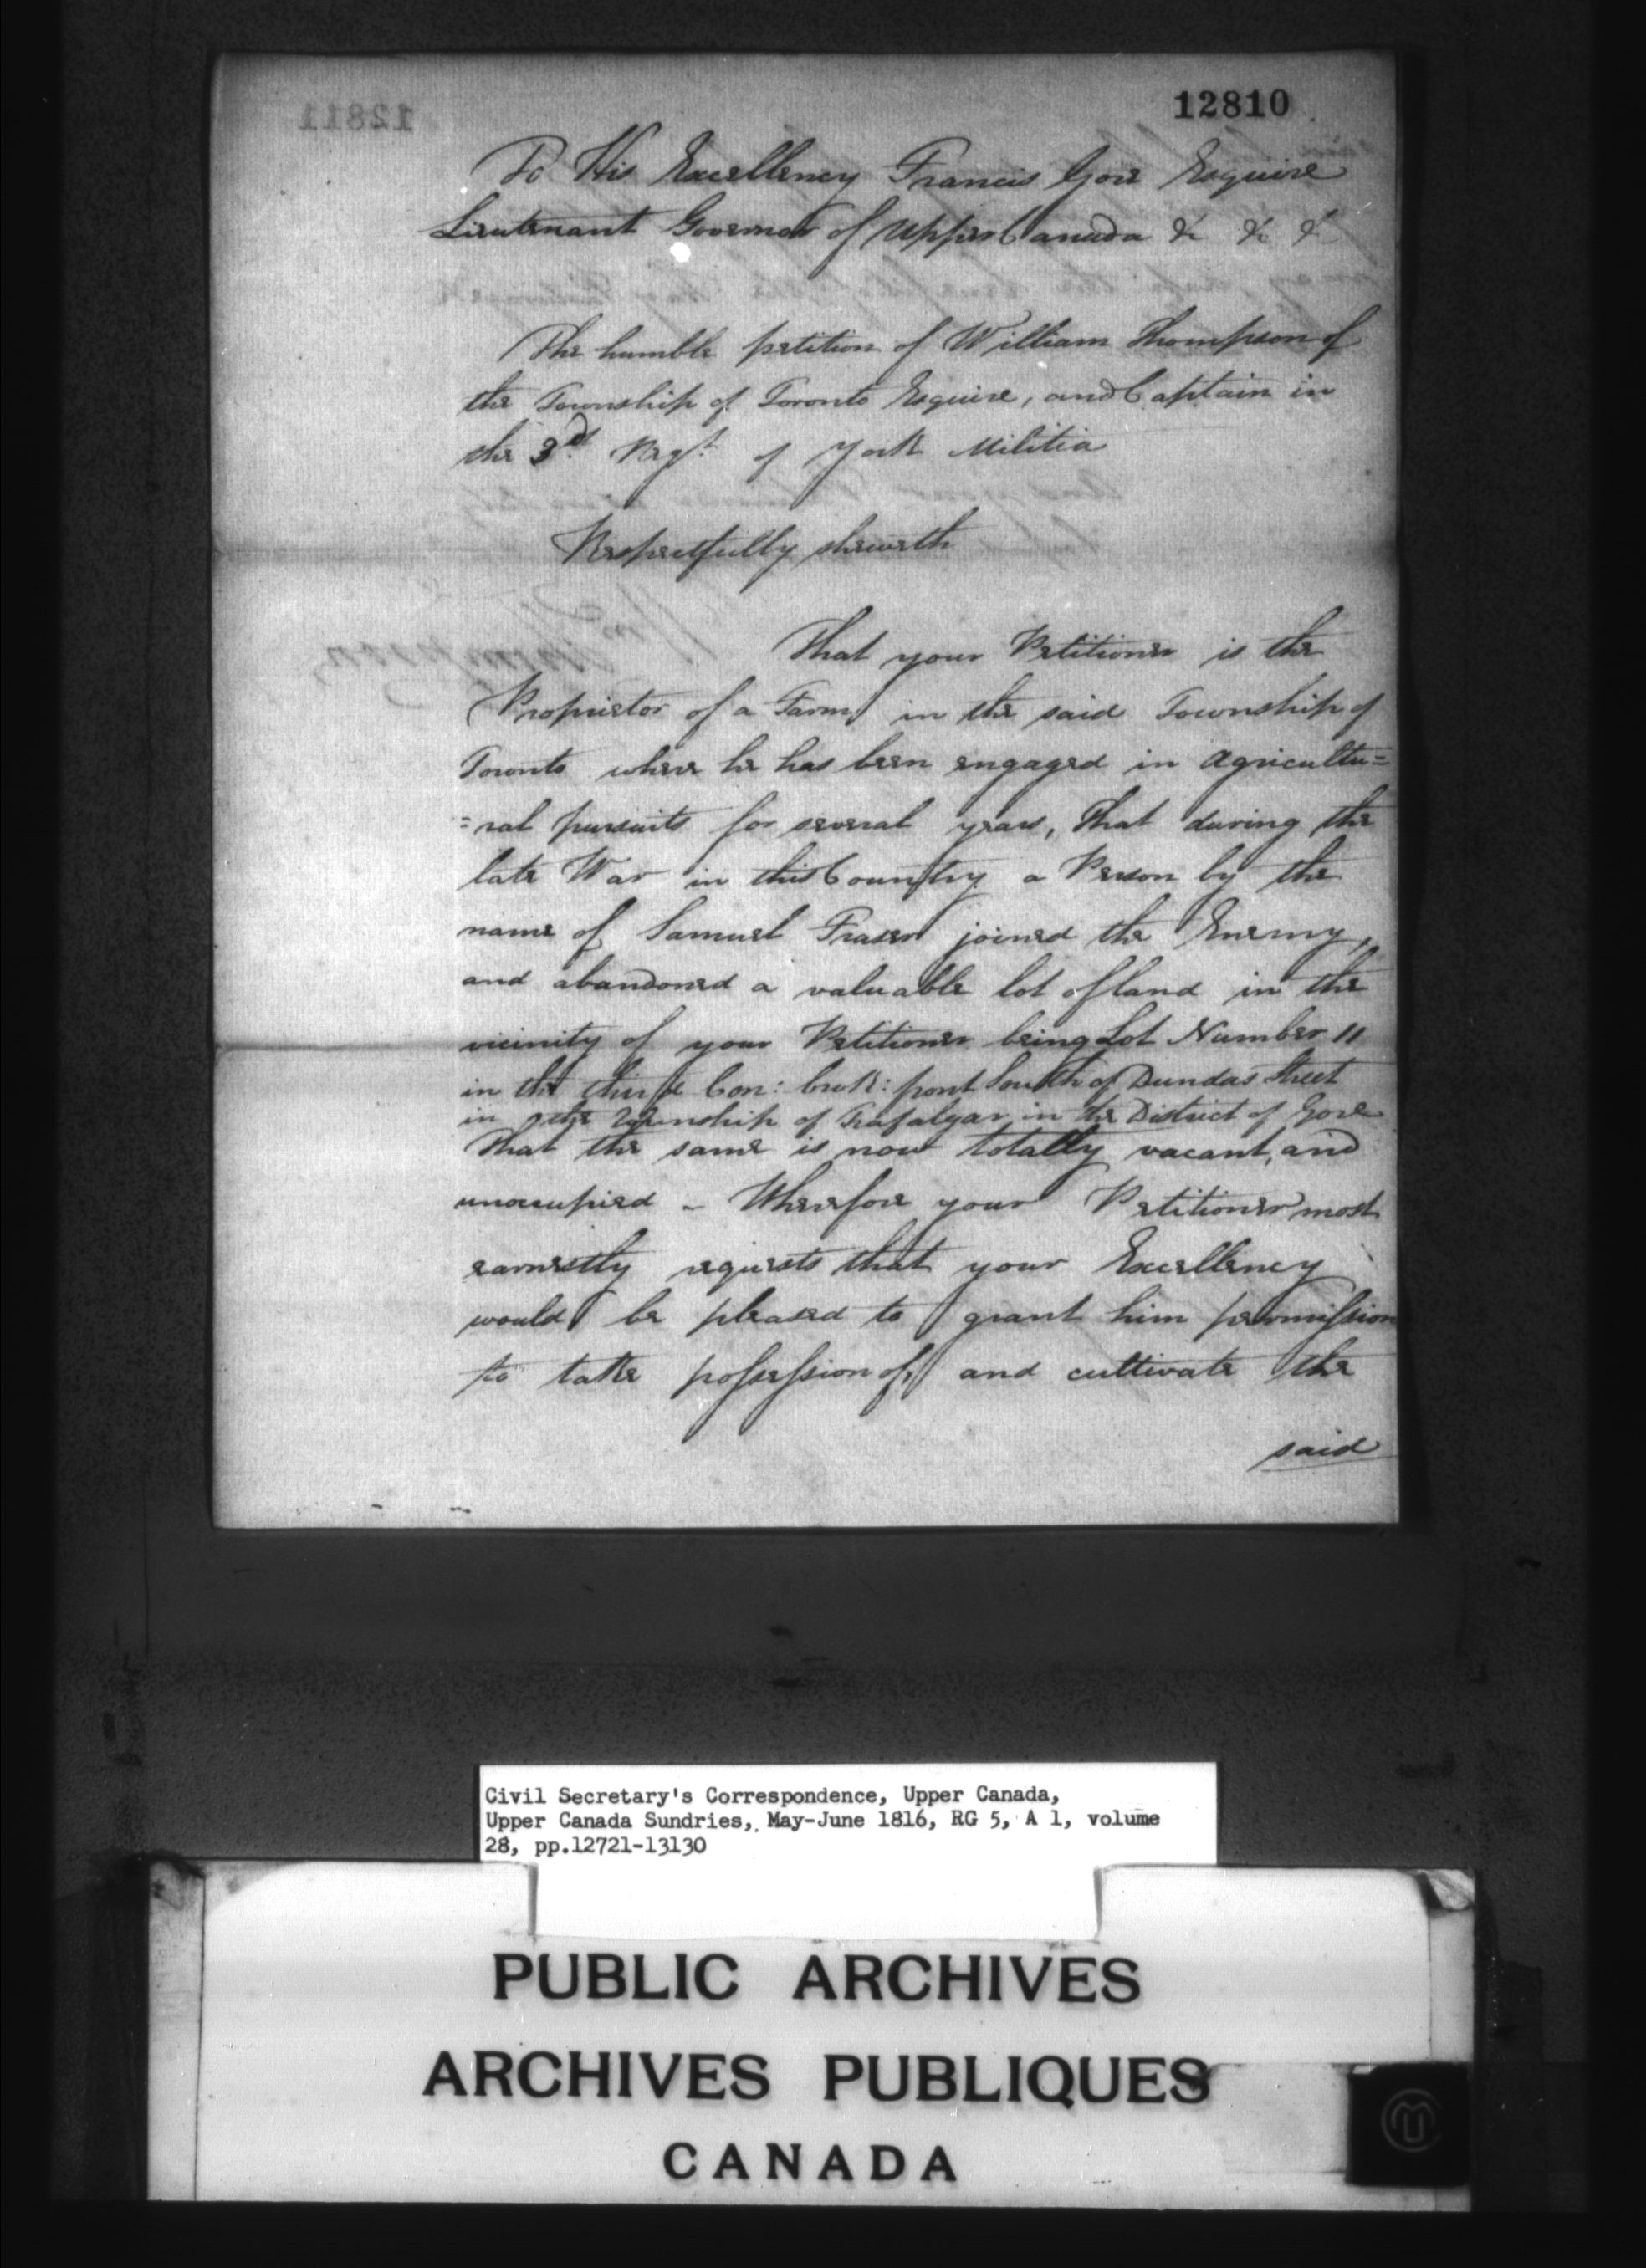 12810
12811
To His Excellency Francis Gore Esquire
Lieutenant Governor of Upper Canada &c &c &c
The humble petition of William Thompson of
the Township of Toronto Esquire, and Captain in
the 3d. Regt. of York Militia
Respectfully sheweth
That your Petitioner is the
Proprietor of a Farm in the said Township of
Toronto where he has been engaged in Agricultu=
=ral pursuits for several years, That during the
late War in this Country a Person by the
name of Samuel Fraser joined the Enemy,
and abandoned a valuable lot of land in the
vicinity of your Petitioner being Lot Number 11
in the third Con: brok: front South of Dundas Street
in the Township of Trafalgar in the District of Gore
That the same is now totally vacant, and
unoccupied - Wherefore your Petitioner most
earnestly requests that your Excellency
would be pleased to grant him permission
to take possession of, and cultivate the
said
Civil Secretary's Correspondence, Upper Canada,
Upper Canada Sundries, May-June 1816, RG 5, A 1, volume
28, pp.12721-13130
PUBLIC ARCHIVES
ARCHIVES PUBLIQUES
CANADA